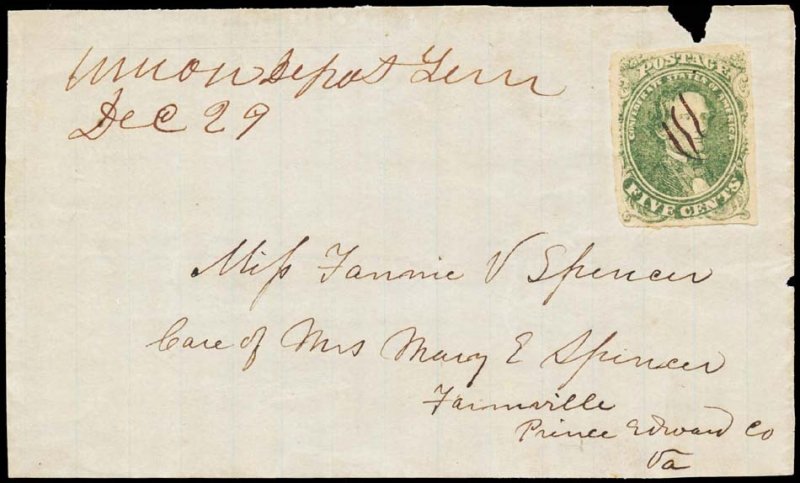 Union Depot Tenn
Dec 29
POSTAGE
CONFEDERATE STATES OF AMERICA
FIVE CENTS
Miss Fannie V Spencer
Care of Mrs Mary E Spencer
Farmville
Prince Edward Co
Va